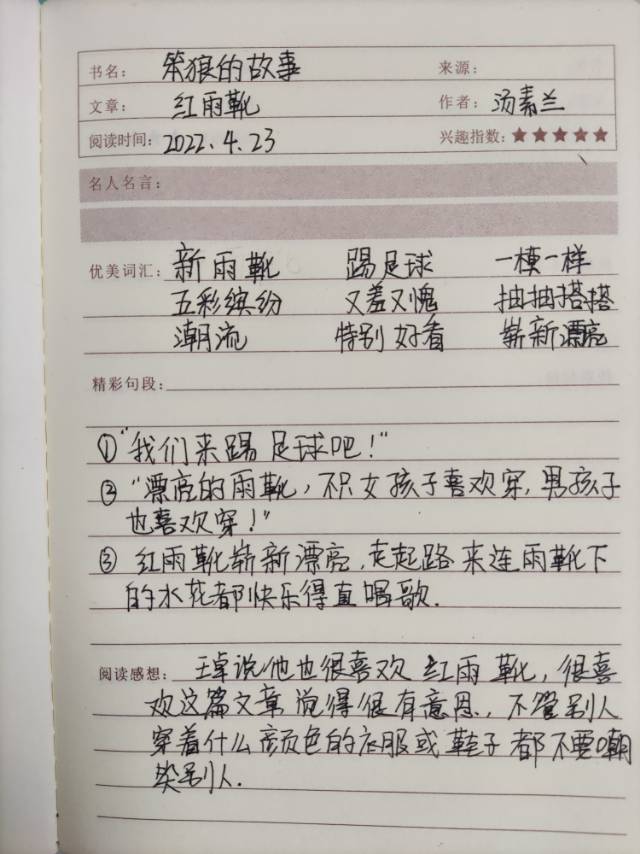 书名：笨狼的故事 来源：
文章：红雨靴 作者：汤素兰
阅读时间：2022.4.23 兴趣指数：★★★★★
名人名言：
优美词汇：新雨靴 踢足球 一模一样
五彩缤纷 又羞又愧 抽抽搭搭
潮流 特别好看 崭新漂亮
精彩句段：
①“我们来踢足球吧！”
②“漂亮的雨靴，不只女孩子喜欢穿，男孩子
也喜欢穿！”
③ 红雨靴崭新漂亮，走起路来连雨靴下
的水花都快乐得直唱歌.
阅读感想：王卓说他也很喜欢红雨靴，很喜
欢这篇文章觉得很有意思，不管别人
穿着什么颜色的衣服或鞋子都不要嘲
笑别人.